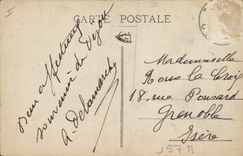 CARTE POSTALE
Bien affectueux
souvenir de Dijon
R. Delamarche
Mademoiselle
18, rue Ponsard
Grenoble
Isère
J57M